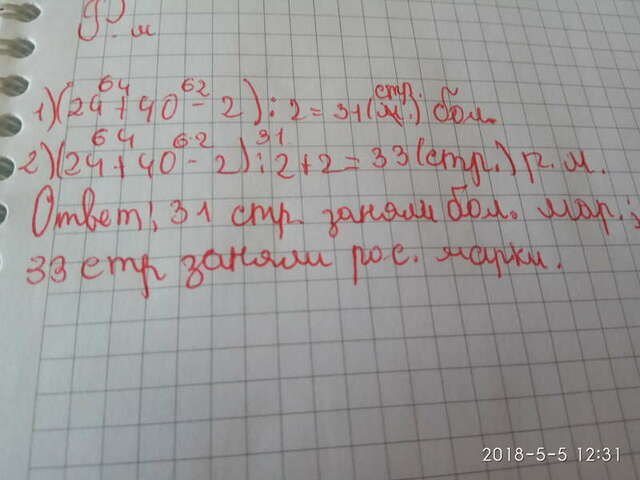 9? м
64 62 стр.
1)(24+40-2):2=31(м.) бол.
64 62 31
2)(24+40-2):2+2=33(стр.) р.м.
Ответ: 31 стр. заняли бол. мар.;
33 стр заняли рос. марки.
2018-5-5 12:31